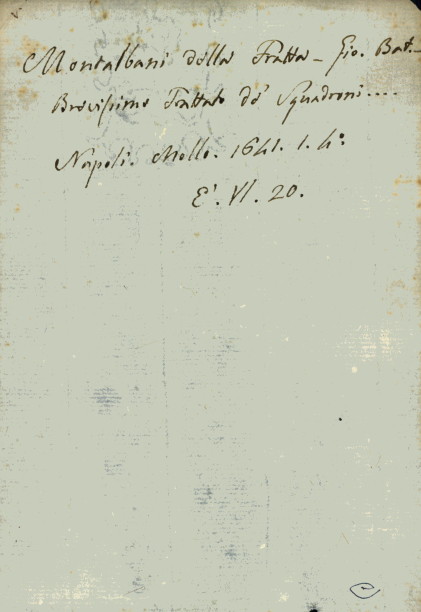 Montalbani della Fratta - Gio. Bat.-
Brevissimo Trattato de' Squadroni....
Napoli. Mollo. 1641. 1. 4°:
E'. VI. 20.